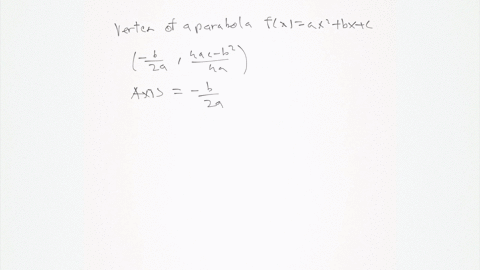 Vertex of a parabola f(x)=ax²+bx+c
(-b/2a, 4ac-b²/4a)
Axis = -b/2a